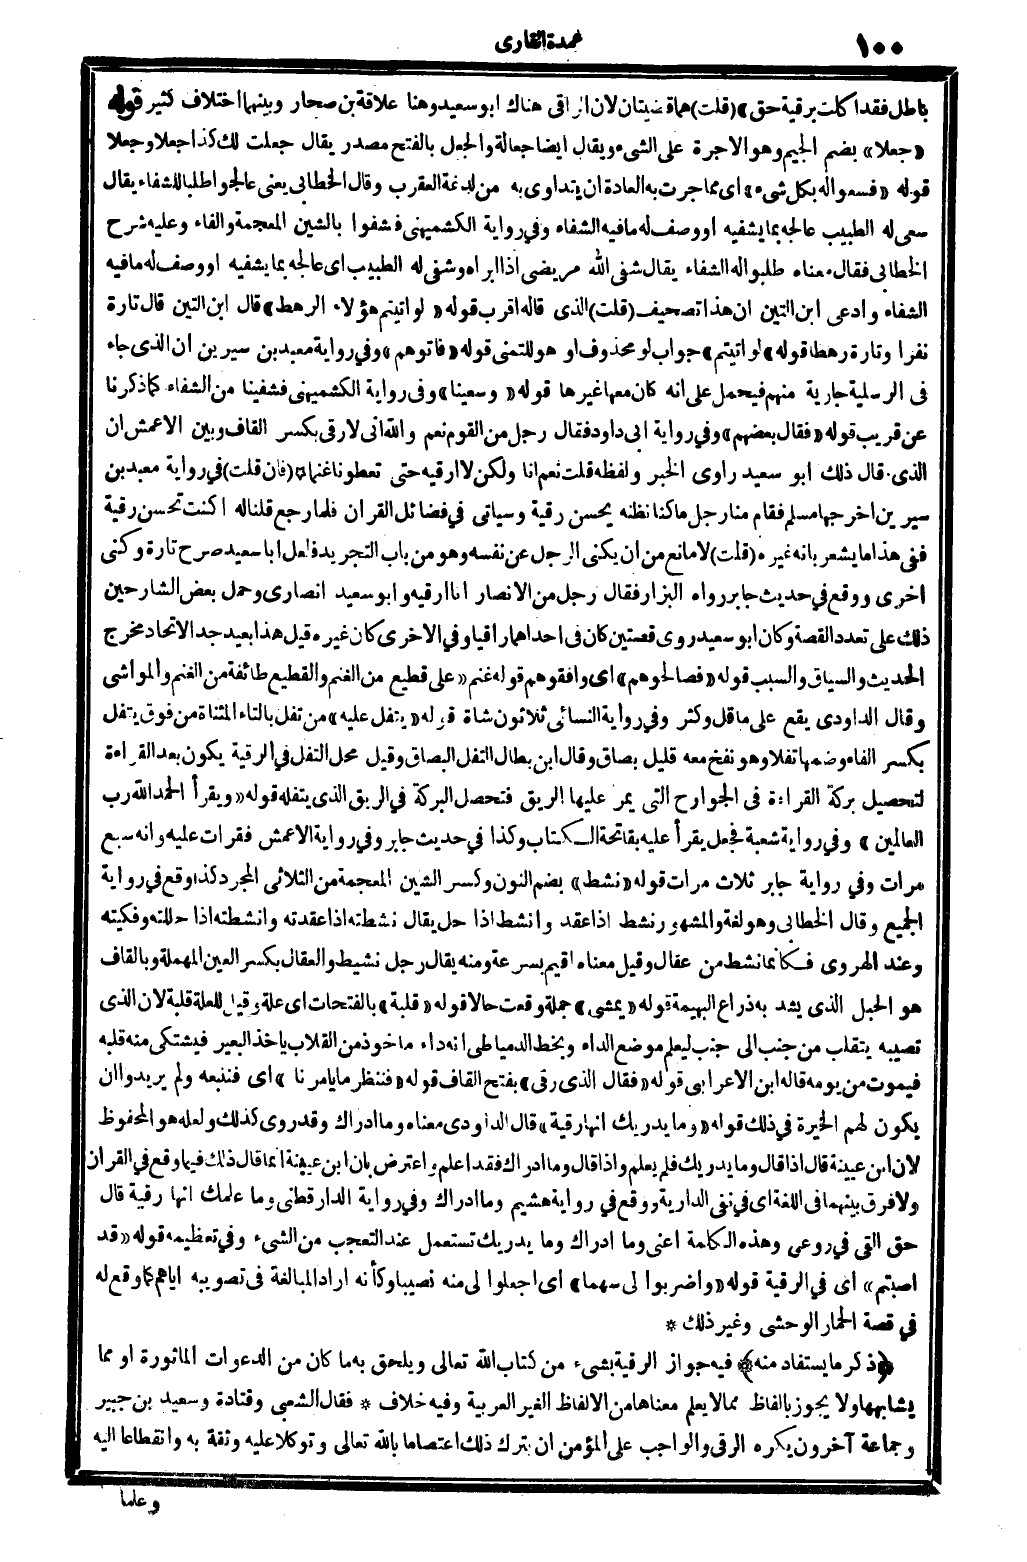 ١٠٠
عمدة القارى
باطل فقد اكلت برقية حق» (قلت) هما قضيتان لان الراقى هناك ابو سعيد وهنا علاقة بن صحار وبينهما اختلاف كثير قوله
«جعلا» بضم الجيم وهو الاجرة على الشىء ويقال ايضا جعالة والجعل بالفتح مصدر يقال جعلت لك كذا جعلا وجعلا
قوله «فسعوا له بكل شىء» اى مما جرت به العادة ان يتداوى به من لدغة العقرب وقال الخطابى يعنى عالجوا طلبا للشفاء يقال
سعى له الطبيب عالجه بما يشفيه او وصف له ما فيه الشفاء وفي رواية الكشميهنى فشفوا بالشين المعجمة والفاء وعليه شرح
الخطابى فقال معناه طلبوا له الشفاء يقال شفى الله مريضى اذا ابراه وشفى له الطبيب اى عالجه بما يشفيه او وصف له ما فيه
الشفاء وادعى ابن التين ان هذا تصحيف (قلت) الذى قاله اقرب قوله «لو اتيتم هؤلاء الرهط» قال ابن التين قال تارة
نفرا وتارة رهطا قوله «لو اتيتم» جواب لو محذوف او هو للتمنى قوله «فاتوهم» وفي رواية معبد بن سيرين ان الذى جاء
فى الرسلية جارية منهم فيحمل على انه كان معها غيرها قوله «وسعينا» وفى رواية الكشميهنى فشفينا من الشفاء كما ذكرنا
عن قريب قوله «فقال بعضهم» وفي رواية ابى داود فقال رجل من القوم نعم والله انى لارقى بكسر القاف وبين الاعمش ان
الذى قال ذلك ابو سعيد راوى الخبر ولفظه قلت نعم انا ولكن لا ارقيه حتى تعطونا غنما * (فان قلت) في رواية معبد بن
سيرين اخرجها مسلم فقام منا رجل ما كنا نظنه يحسن رقية وسياتى في فضائل القران فلما رجع قلنا له اكنت تحسن رقية
ففى هذا ما يشعر بانه غيره (قلت) لا مانع من ان يكنى الرجل عن نفسه وهو من باب التجريد فلعل ابا سعيد صرح تارة وكنى
اخرى ووقع في حديث جابر رواه البزار فقال رجل من الانصار انا ارقيه وابو سعيد انصارى وحمل بعض الشارحين
ذلك على تعدد القصة وكان ابو سعيد روى قصتين كان فى احداهما راقيا وفي الاخرى كان غيره قيل هذا بعيد جدا لاتحاد مخرج
الحديث والسياق والسبب قوله «فصالحوهم» اى وافقوهم قوله غنم «على قطيع من الغنم والقطيع طائفة من الغنم والمواشى
وقال الداودى يقع على ما قل وكثر وفي رواية النسائى ثلاثون شاة قوله «يتفل عليه» من تفل بالتاء المثناة من فوق يتفل
بكسر الفاء وضمها تفلا وهو نفخ معه قليل بصاق وقال ابن بطال التفل البصاق وقيل محل التفل في الرقية يكون بعد القراءة
لتحصيل بركة القراءة فى الجوارح التى يمر عليها الريق فتحصل البركة في الريق الذى يتفله قوله «ويقرأ الحمد لله رب
العالمين» وفي رواية شعبة فجعل يقرأ عليه بفاتحة الكتاب وكذا في حديث جابر وفي رواية الاعمش فقرات عليه وانه سبع
مرات وفي رواية جابر ثلاث مرات قوله «نشط» بضم النون وكسر الشين المعجمة من الثلاثى المجرد كذا وقع في رواية
الجميع وقال الخطابى وهو لغة والمشهور نشط اذا عقد وانشط اذا حل يقال نشطته اذا عقدته وانشطته اذا حللته وفكيته
وعند الهروى فكانما نشط من عقال وقيل معناه اقيم بسرعة ومنه يقال رجل نشيط والعقال بكسر العين المهملة وبالقاف
هو الحبل الذى يشد به ذراع البهيمة قوله «يمشى» جملة وقعت حالا قوله «قلبة» بالفتحات اى علة وقيل للعلة قلبة لان الذى
تصيبه يتقلب من جنب الى جنب ليعلم موضع الداء وبخط الدمياطى انه داء ماخوذ من القلاب ياخذ البعير فيشتكى منه قلبه
فيموت من يومه قاله ابن الاعرابى قوله «فقال الذى رقى» بفتح القاف قوله «فننظر ما يامرنا» اى فنتبعه ولم يريدوا ان
يكون لهم الخيرة في ذلك قوله «وما يدريك انها رقية» قال الداودى معناه وما ادراك وقد روى كذلك ولعله هو المحفوظ
لان ابن عيينة قال اذا قال وما يدريك فلم يعلم واذا قال وما ادراك فقد اعلم واعترض بان ابن عيينة انما قال ذلك فيما وقع في القران
ولا فرق بينهما فى اللغة اى في نفى الدارية ووقع في رواية هشيم وما ادراك وفي رواية الدارقطنى وما علمك انها رقية قال
حق القى في روعى وهذه الكلمة اعنى وما ادراك وما يدريك تستعمل عند التعجب من الشىء وفي تعظيمه قوله «قد
اصبتم» اى في الرقية قوله «واضربوا لى سهما» اى اجعلوا لى منه نصيبا وكأنه اراد المبالغة فى تصويبه اياهم كما وقع له
في قصة الحمار الوحشى وغير ذلك *
(ذكر ما يستفاد منه) * فيه جواز الرقية بشىء من كتاب الله تعالى ويلحق به ما كان من الدعوات الماثورة او مما
يشابهها ولا يجوز بالفاظ مما لا يعلم معناها من الالفاظ الغير العربية وفيه خلاف * فقال الشعبى وقتادة وسعيد بن جبير
وجماعة آخرون يكره الرقى والواجب على المؤمن ان يترك ذلك اعتصاما بالله تعالى وتوكلا عليه وثقة به وانقطاعا اليه
وعلما